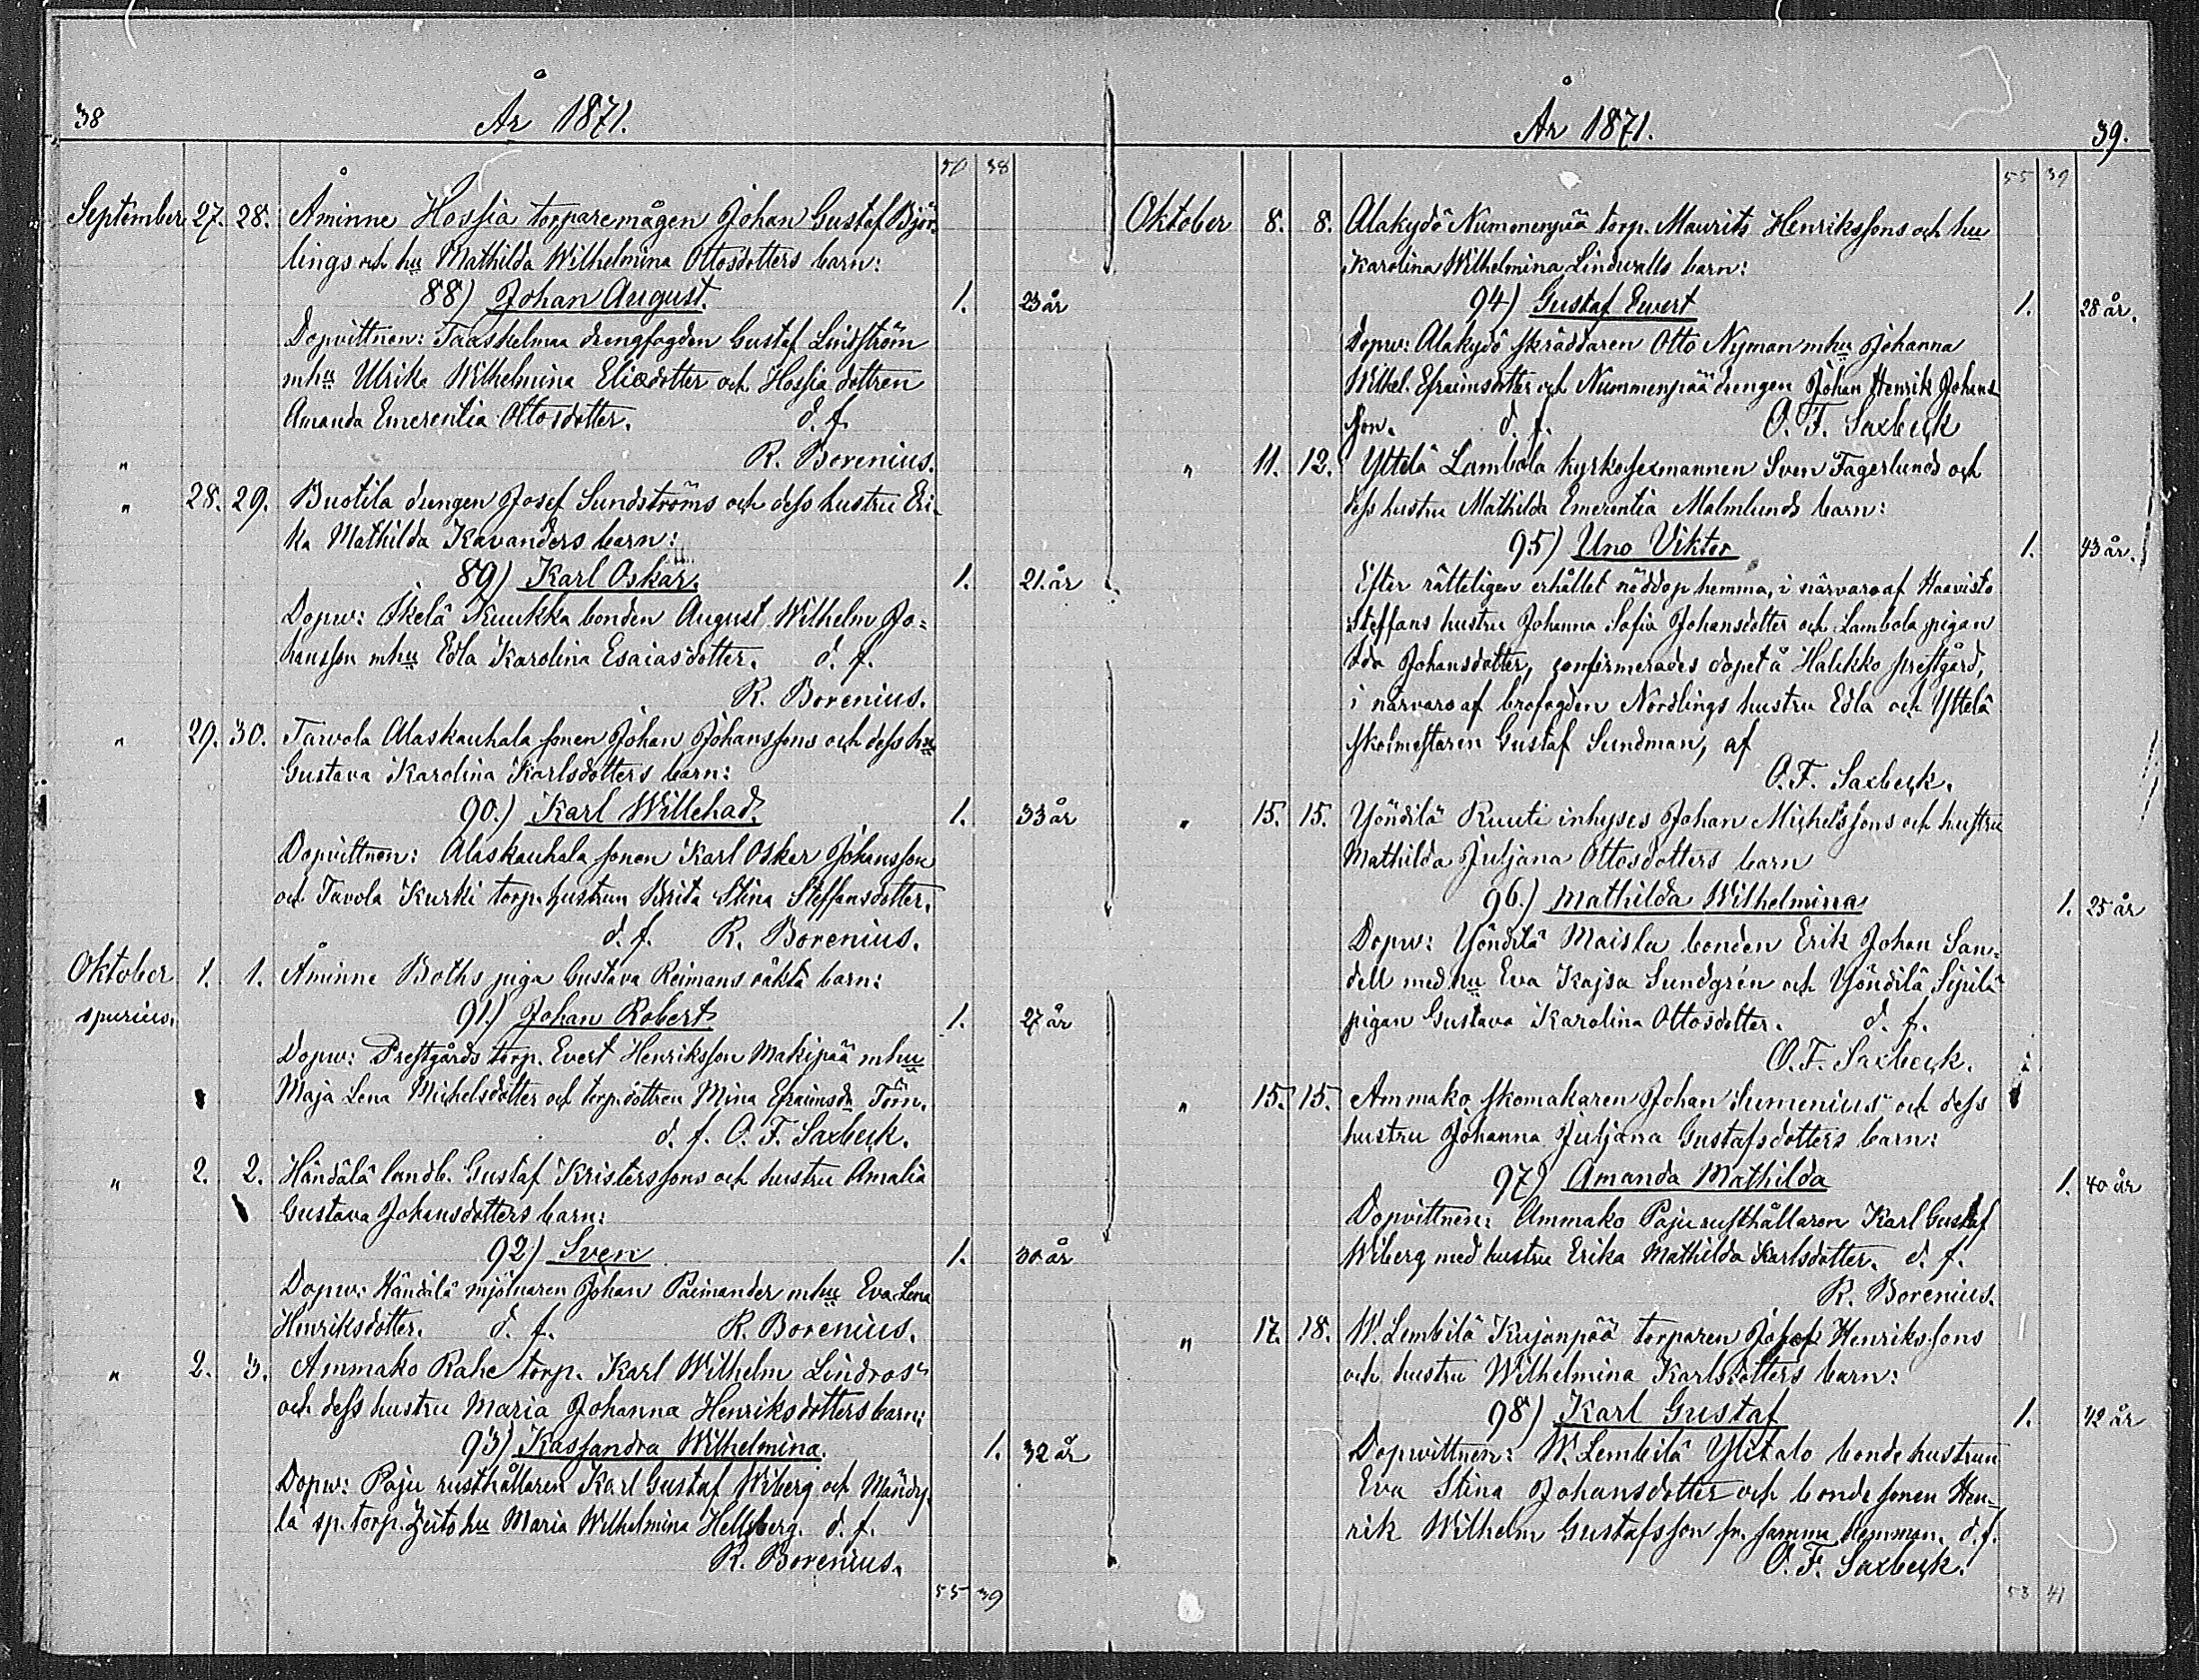 38
År 1871.
50 38
September 27. 28. Åminne Hossia torparemågen Johan Gustaf Björ-
lings och hu Mathilda Wilhelmina Ottosdotters barn:
88) Johan August. 1. 23 år
Dopvittnen: Taaskelmaa drengfogden Gustaf Lindström
mhu Ulrika Wilhelmina Eliedotter och Hossia dottren
Amanda Emerentia Ottosdotter. d. f.
" R. Borenius.
" 28. 29. Buotila drengen Josef Sundströms och dess hustru Eri-
ka Mathilda Kavanders barn:
89) Karl Oskar. 1. 21. år
Dopw: Ikelä Kuukka bonden August Wilhelm Jo=
hansson mhu Edla Karolina Esaiasdotter. d. f.
R. Borenius.
" 29. 30. Tavvola Alaskauhala sonen Johan Johanssons och dess hu
Gustava Karolina Karlsdotters barn:
90.) Karl Willehad. 1. 33 år
Dopvittnen: Alaskauhala sonen Karl Oskar Johansson
och Tavola Kurki torp. hustrun Brita Stina Steffansdotter.
d. f. R. Borenius.
Oktober 1. 1. Åminne Boths piga Gustava Reimans oäkta barn:
spurius. 91.) Johan Robert 1. 27 år
Dopw: Prestgårds torp. Evert Henriksson Makipää mhu
Maja Lena Michelsdotter och torp. dottren Mina Efraimsdr Törn.
d. f. O. F. Saxbeck.
" 2. 2. Händälä landb. Gustaf Kristerssons och hustru Amalia
Gustava Johansdotters barn:
92) Sven 1. 30 år
Dopw: Händilä mjölnaren Johan Paimander mhu Eva Lena
Henriksdotter. d. f. R. Borenius.
" 2. 3. Ammako Rahe torp. Karl Wilhelm Lindros"
och dess hustru Maria Johanna Henriksdotters barn:
93) Kassandra Wilhelmina. 1. 32 år
Dopw: Paju rusthållaren Karl Gustaf Wiberg och Mändy-
lä sp. torp. hu Maria Wilhelmina Hellsberg. d. f.
R. Borenius.
55 39
År 1871.
39.
55 39
Oktober 8. 8. Alakydö Nummenpää torp. Maurits Henrikssons och hu
Karolina Wilhelmina Lindwalls barn:
94) Gustaf Evert 1. 28 år.
Dopw: Alakydö skräddaren Otto Nyman mhu Johanna
Wilhel. Efraimsdotter och Nummenpää drengen Johan Henrik Johans
son. d. f. O. F. Saxbeck
" 11. 12. Yttelä Lambola kyrkosexmannen Sven Fagerlunds och
dess hustru Mathilda Emerentia Malmlunds barn:
95) Uno Viktor 1. 43 år.
Efter rätteligen erhållet nöddop hemma, i närvaro af Haavisto
Steffans hustru Johanna Sofia Johansdotter och Lambola pigan
Ida Johansdotter, confirmerades dopet å Halikko prestgård,
i närvaro af brofogden Nordlings hustru Edla och Yttelä
skolmestaren Gustaf Sundman, af
O. F. Saxbeck.
" 15. 15. Yöndilä Ruuti inhyses Johan Michelssons och hustru
Mathilda Juljana Ottosdotters barn
96.) Mathilda Wilhelmina 1. 25 år
Dopw: Yöndilä Maisla bonden Erik Johan San=
dell med hu Eva Kajsa Sundgrén och Yöndilä Sipilä
pigan Gustava Karolina Ottosdotter. d. f.
O. F. Saxbeck.
" 15. 15. Ammako skomakaren Johan Sumenius och dess
hustru Johanna Juljana Gustafsdotters barn:
97) Amanda Mathilda 1. 40 år
Dopvittnen: Ammako Paju rusthållaren Karl Gustaf
Wiberg med hustru Erika Mathilda Karlsdotter. d. f.
R. Borenius.
" 17. 18. W. Lembilä Kujanpää torparen Josef Henrikssons
och hustru Wilhelmina Karlsdotters barn:
98) Karl Gustaf 1. 42 år
Dopvittnen: W. Lembilä Ylitalo bondehustrun
Eva Stina Johansdotter och bondesonen Hen-
rik Wilhelm Gustafsson fr. samma hemman. d. f.
O. F. Saxbeck.
53 41